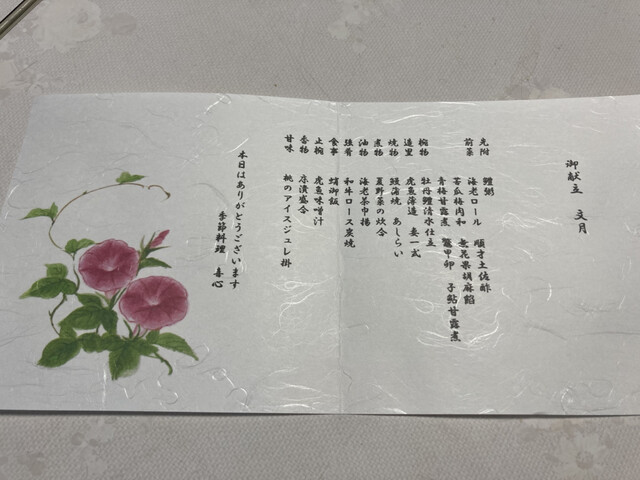 御献立 文月
先附 鱧粥
前菜 海老ロール 順才土佐酢
苦瓜梅肉和 無花果胡麻餡
青梅甘露煮 鼈甲卵 子鮎甘露煮
椀物 牡丹鱧清水仕立
造里 虎魚薄造 妻一式
焼物 鰻蒲焼 あしらい
煮物 夏野菜の炊合
油物 海老茶巾揚
強肴 和牛ロース炭焼
食事 蛸御飯
止椀 虎魚味噌汁
香物 床漬盛合
甘味 桃のアイスジュレ掛
本日はありがとうございます
季節料理 喜心